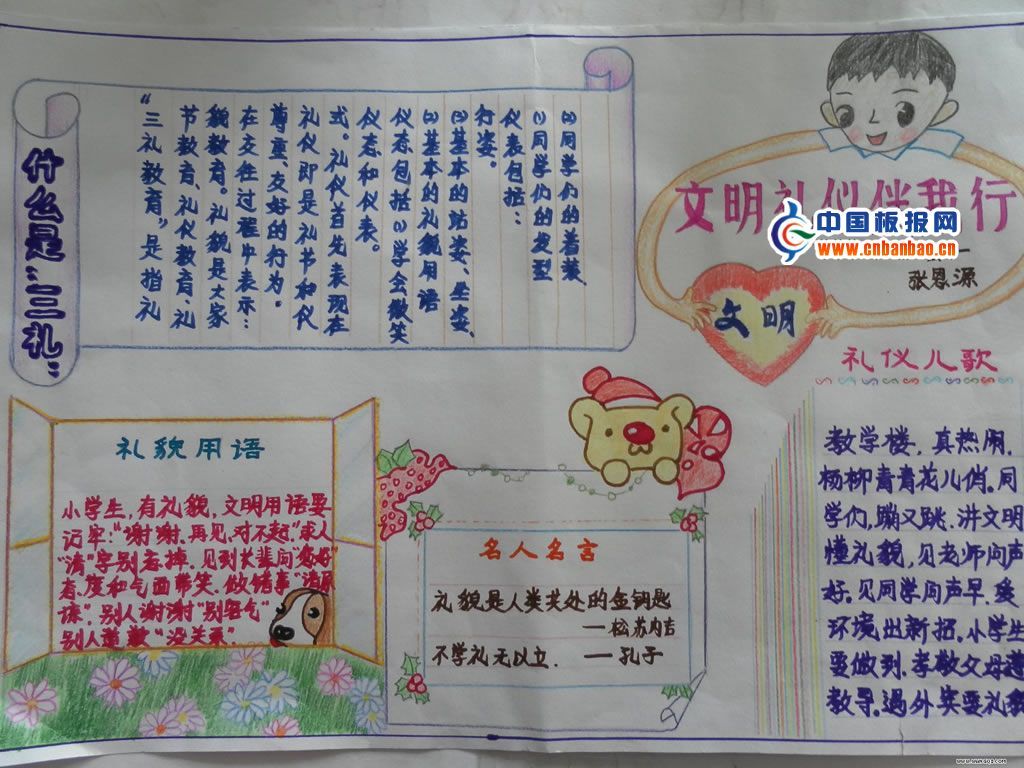 什么是"三礼"
"三礼教育"是指礼
节教育、礼仪教育、礼
貌教育。礼貌是大家
在交往过程中表示:
尊重、友好的行为。
礼仪即是礼节和仪
式。礼仪首先表现在
仪态和仪表。
仪态包括(1)学会微笑
(2)基本的礼貌用语
(3)基本的站姿、坐姿、
行姿。
仪表包括:
(1)同学们的发型
(2)同学们的着装、
文明礼仪伴我行
中国板报网
www.cnbanbao.cn
张恩源
文明
礼仪儿歌
教学楼,真热闹,
杨柳青青花儿俏。同
学们,蹦又跳,讲文明
懂礼貌,见老师问声
好。见同学问声早,美
环境出新招。小学生
要做到,孝敬父母遵
教导。遇外宾要礼貌
礼貌用语
小学生,有礼貌,文明用语要
记牢:"谢谢、再见、对不起",求人
"请"字别忘掉。见到长辈问"您好"
着,度和气面带笑。做错事"请原
谅",别人谢谢"别客气"
别人道歉"没关系"
名人名言
礼貌是人类共处的金钥匙
——松苏内吉
不学礼无以立.——孔子